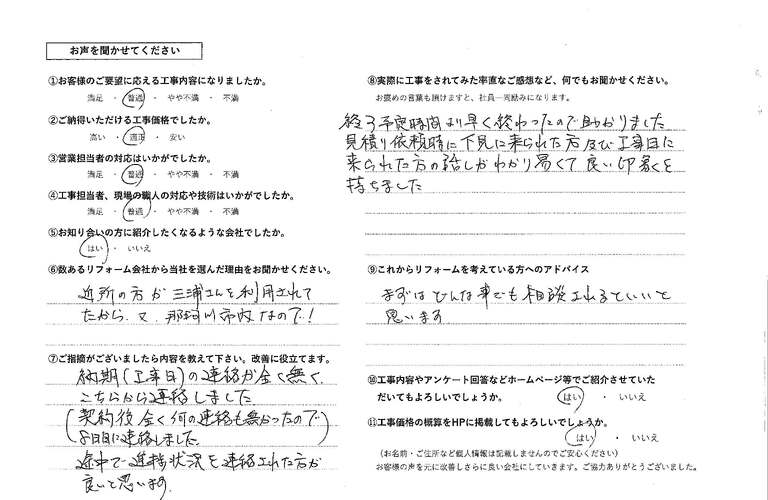 お声を聞かせてください
①お客様のご要望に応える工事内容になりましたか。
満足 ・ 普通 ・ やや不満 ・ 不満
②ご納得いただける工事価格でしたか。
高い ・ 適正 ・ 安い
③営業担当者の対応はいかがでしたか。
満足 ・ 普通 ・ やや不満 ・ 不満
④工事担当者、現場の職人の対応や技術はいかがでしたか。
満足 ・ 普通 ・ やや不満 ・ 不満
⑤お知り合いの方に紹介したくなるような会社でしたか。
はい ・ いいえ
⑥数あるリフォーム会社から当社を選んだ理由をお聞かせください。
近所の方が三浦さんを利用されて
たから、又、那珂川市内なので!
⑦ご指摘がございましたら内容を教えて下さい。改善に役立てます。
納期(工事日)の連絡が全く無く、
こちらから連絡しました
(契約後全く何の連絡も無かったので
8日目に連絡しました)
途中で進捗状況を連絡された方が
良いと思います。
⑧実際に工事をされてみた率直なご感想など、何でもお聞かせください。
お褒めの言葉も頂けますと、社員一同励みになります。
終了予定時間より早く終わったので助かりました
見積り依頼時に下見に来られた方及び工事日に
来られた方の話しがわかり易くて良い印象を
持ちました
⑨これからリフォームを考えている方へのアドバイス
まずはどんな事でも相談されるといいと
思います
⑩工事内容やアンケート回答などホームページ等でご紹介させていた
だいてもよろしいでしょうか。 はい ・ いいえ
⑪工事価格の概算をHPに掲載してもよろしいでしょうか。
はい ・ いいえ
(お名前・ご住所など個人情報は記載しませんのでご安心ください)
お客様の声を元に改善しさらに良い会社にしていきます。ご協力ありがとうございました。